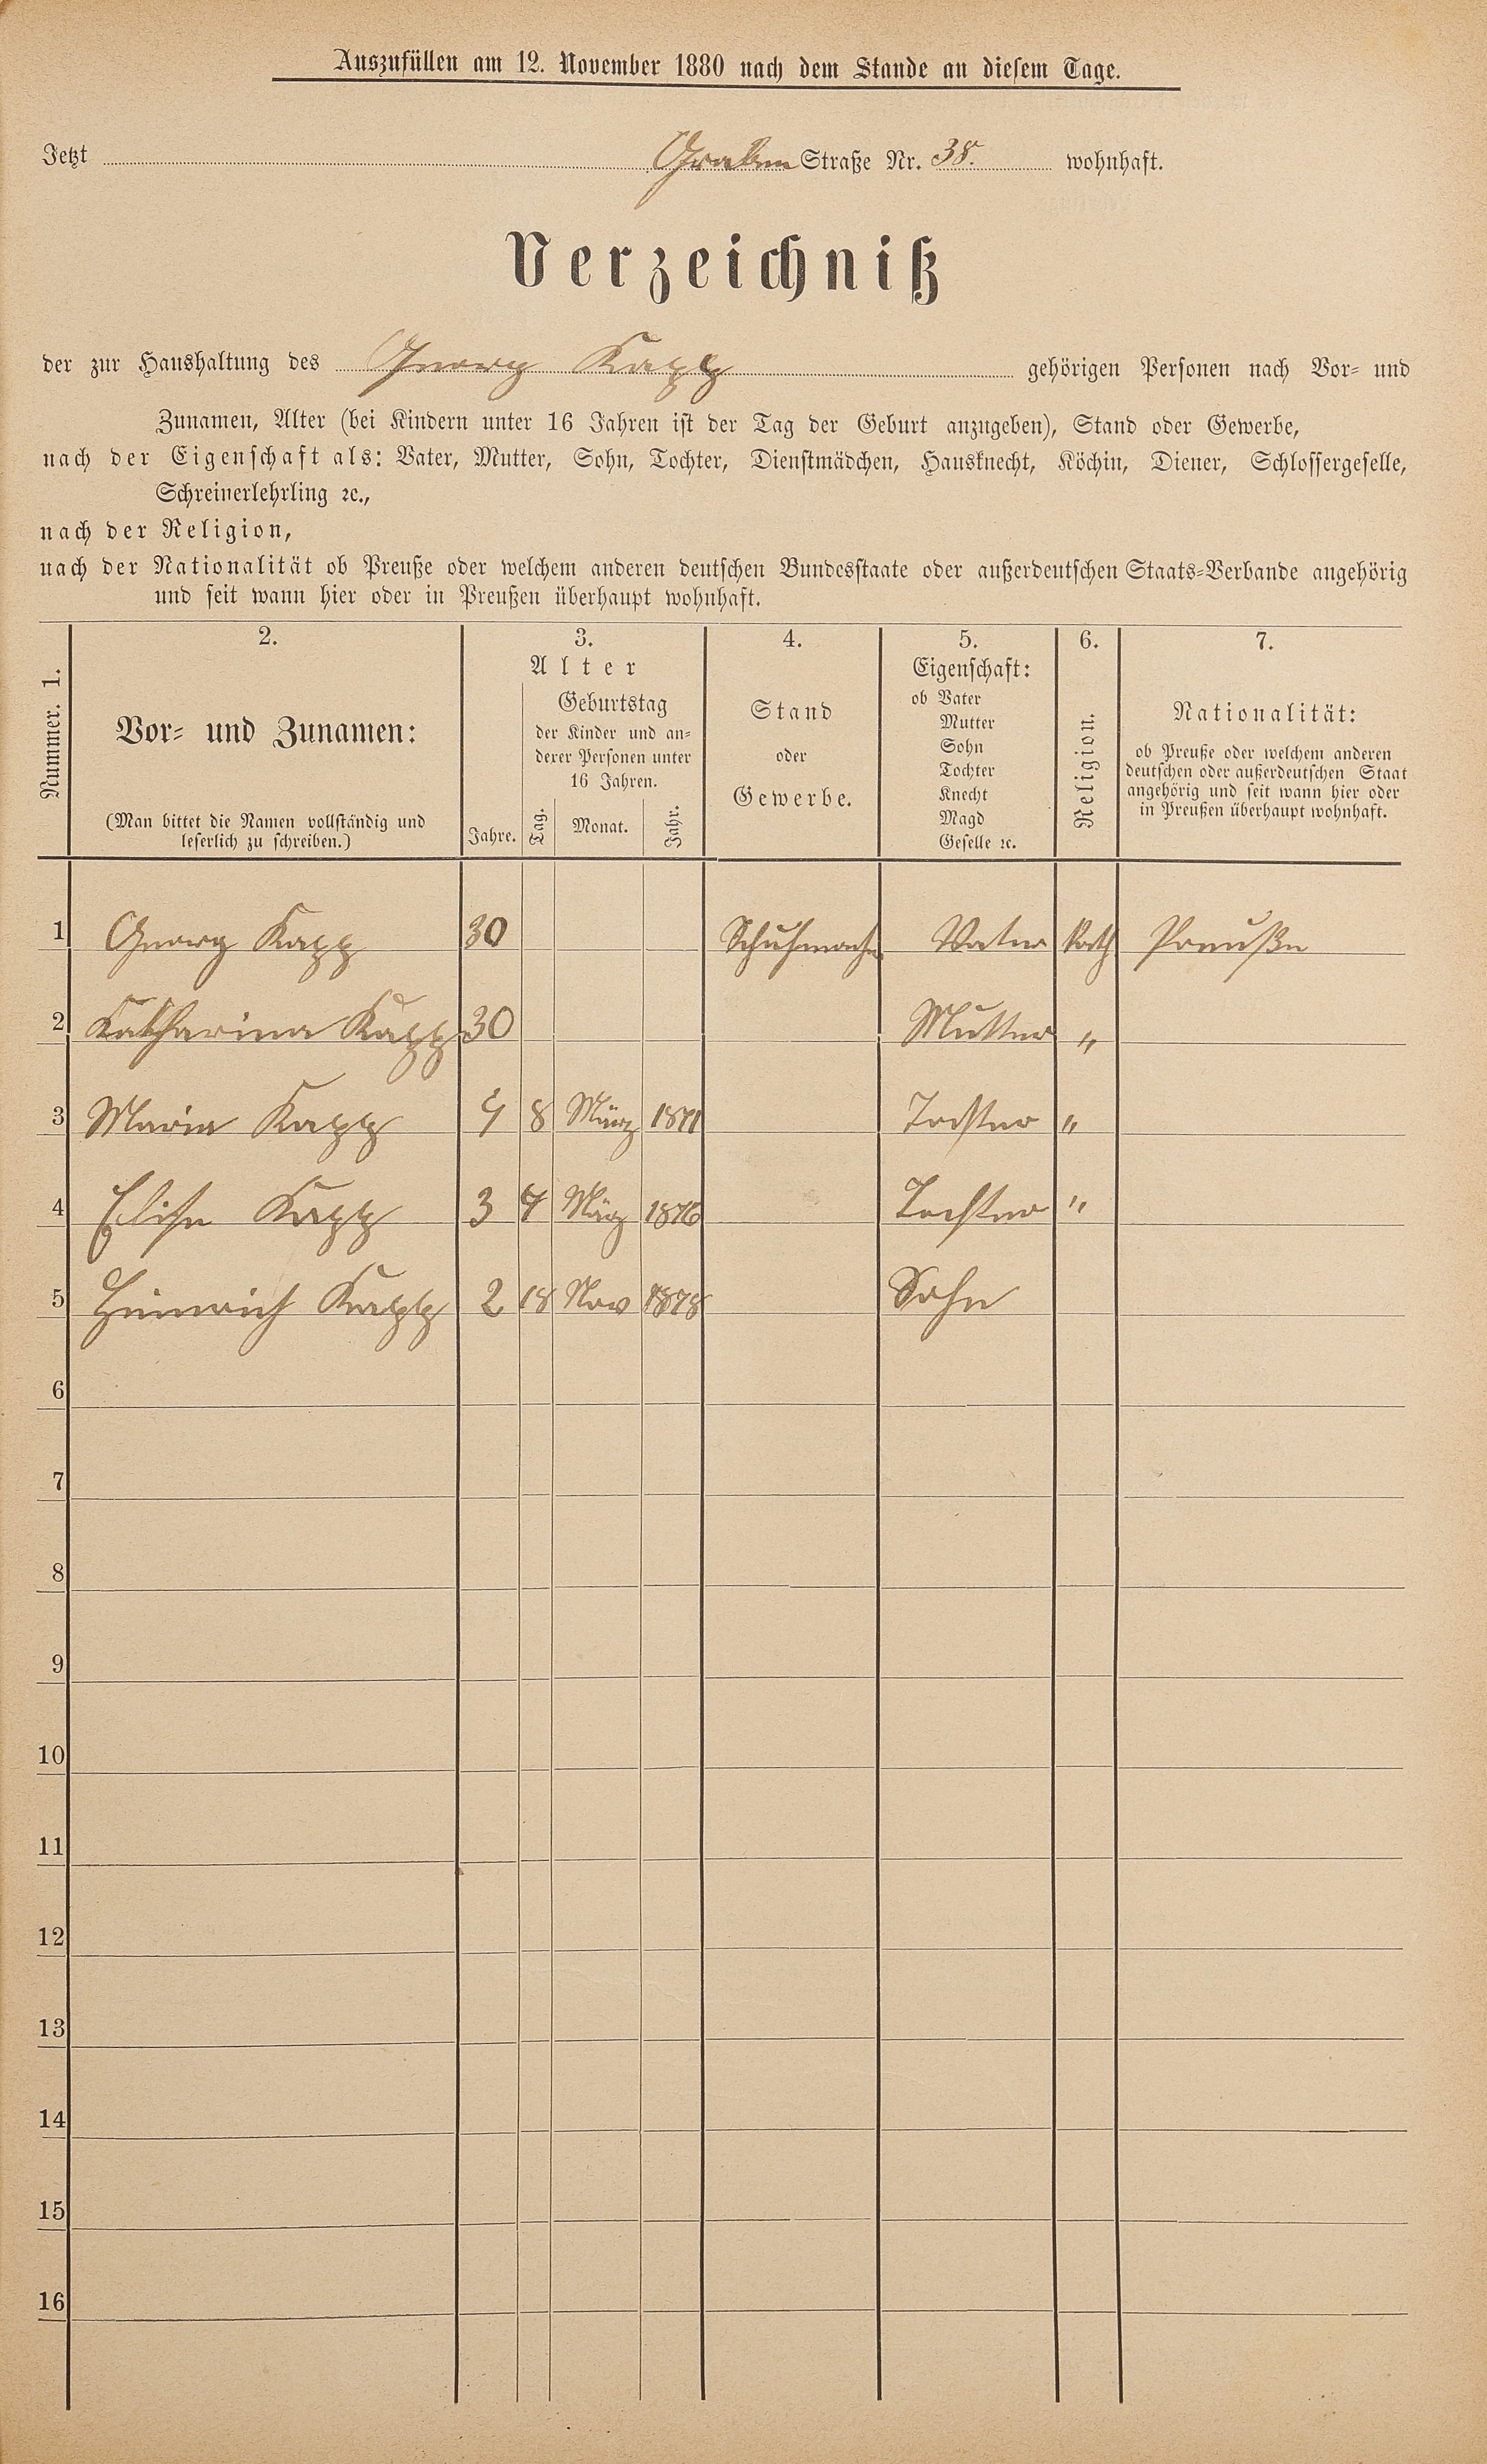 Auszufüllen am 12. November 1880 nach dem Stande an diesem Tage.
Jetzt Graben Straße Nr. 38. wohnhaft.
Verzeichniß
der zur Haushaltung des Georg Kapp gehörigen Personen nach Vor- und
Zunamen, Alter (bei Kindern unter 16 Jahren ist der Tag der Geburt anzugeben), Stand oder Gewerbe,
nach der Eigenschaft als: Vater, Mutter, Sohn, Tochter, Dienstmädchen, Hausknecht, Köchin, Diener, Schlossergeselle,
Schreinerlehrling ꝛc.,
nach der Religion,
nach der Nationalität ob Preuße oder welchem anderen deutschen Bundesstaate oder außerdeutschen Staats-Verbande angehörig
und seit wann hier oder in Preußen überhaupt wohnhaft.
Nummer. 1.
2.
Vor- und Zunamen:
(Man bittet die Namen vollständig und
leserlich zu schreiben.)
3.
Alter
Jahre.
Geburtstag
der Kinder und an-
derer Personen unter
16 Jahren.
Tag. Monat. Jahr.
4.
Stand
oder
Gewerbe.
5.
Eigenschaft:
ob Vater
Mutter
Sohn
Tochter
Knecht
Magd
Geselle ꝛc.
6.
Religion.
7.
Nationalität:
ob Preuße oder welchem anderen
deutschen oder außerdeutschen Staat
angehörig und seit wann hier oder
in Preußen überhaupt wohnhaft.
1 Georg Kapp 30 Schuhmacher Vater Kath Preuße
2 Katharina Kapp 30 Mutter "
3 Maria Kapp 8 März Tochter "
4 Elise Kapp 3 7 März 1876 Tochter "
5 Heinrich Kapp 2 18 Nov 1878 Sohn
6
7
8
9
10
11
12
13
14
15
16